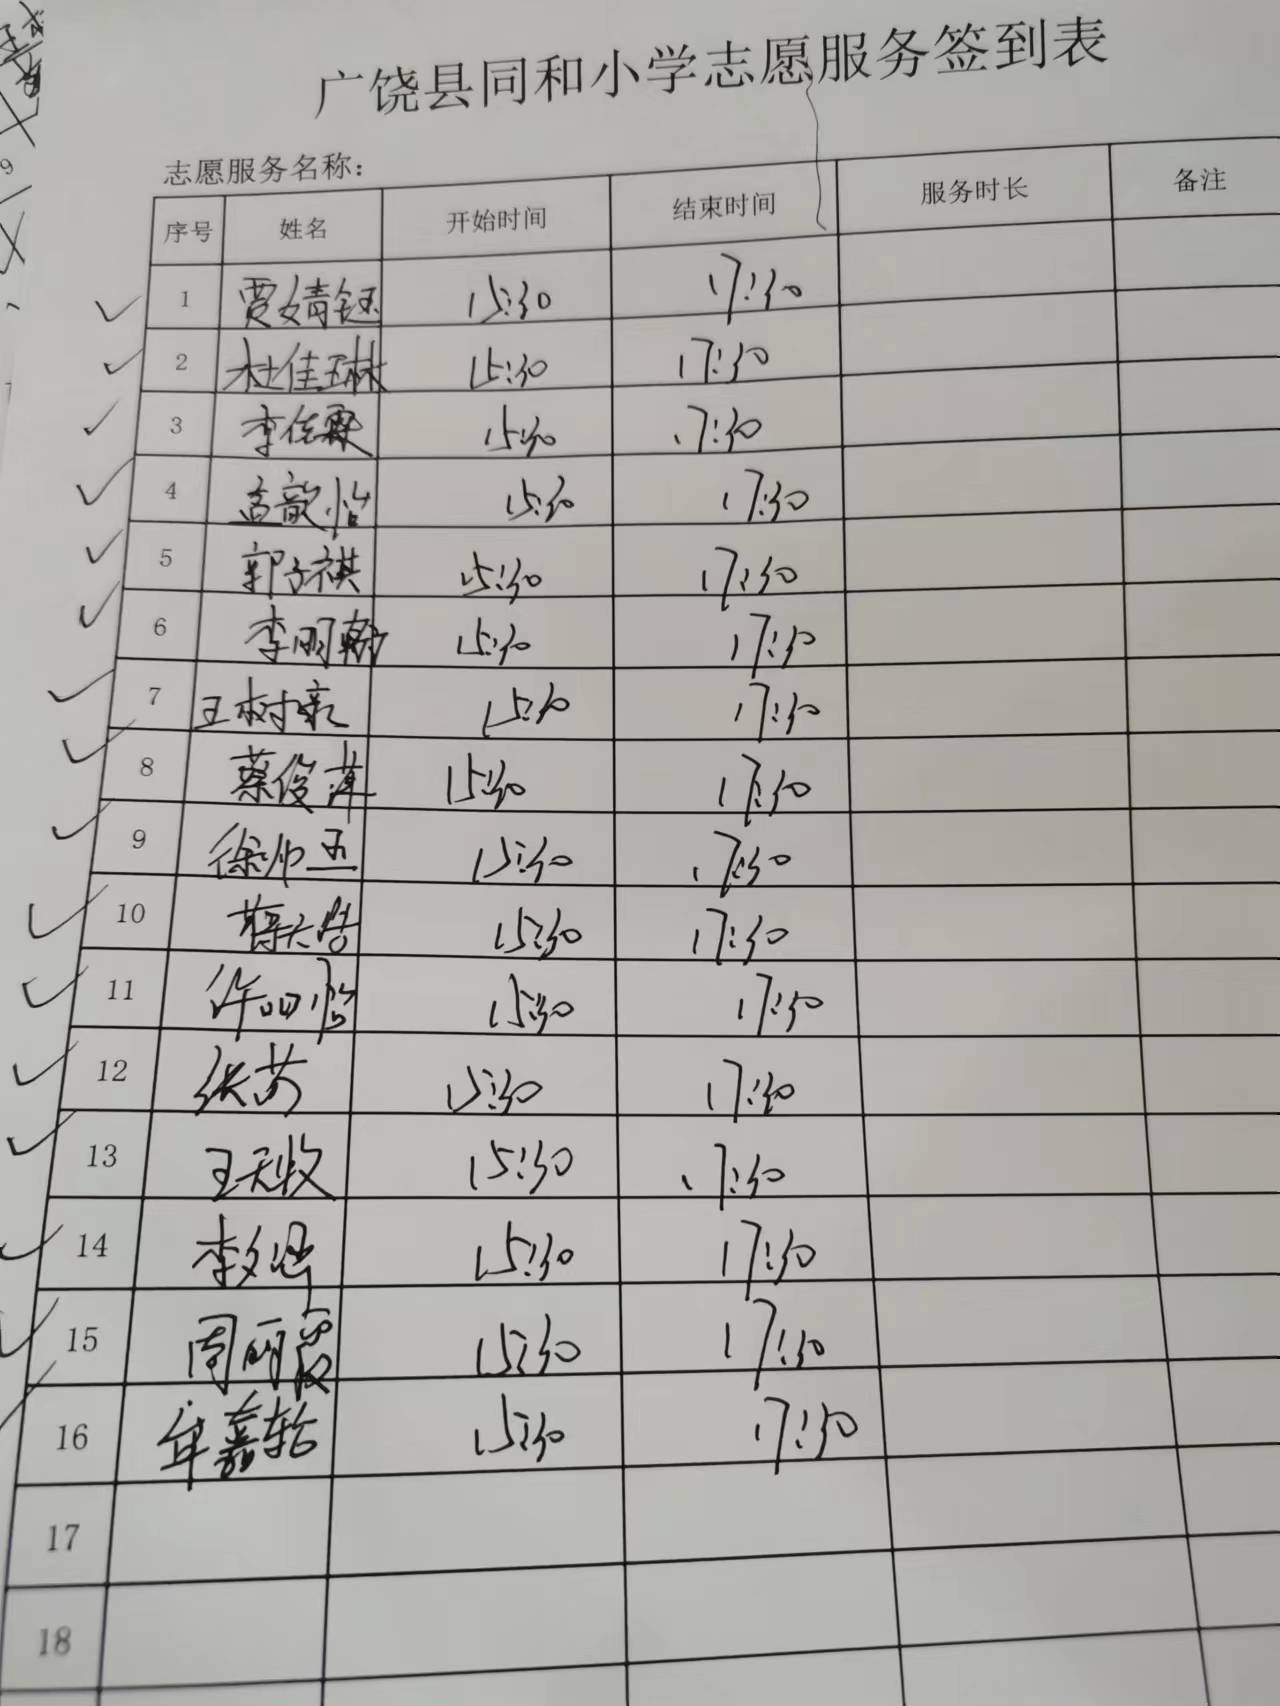 广饶县同和小学志愿服务签到表
志愿服务名称：
序号 姓名 开始时间 结束时间 服务时长 备注
1 贾婧钰 15:30 17:30
2 杜佳琳 15:30 17:30
3 李佳霖 15:30 17:30
4 孟歆怡 15:30 17:30
5 郭子祺 15:30 17:30
6 李明翰 15:30 17:30
7 王树 15:30 17:30
8 蔡俊 15:30 17:30
9 徐帅 15:30 17:30
10 15:30 17:30
11 许 怡 15:30 17:30
12 张苏 15:30 17:30
13 王天牧 15:30 17:30
14 李文 15:30 17:30
15 周丽霞 15:30 17:30
16 牟嘉 15:30 17:30
17
18